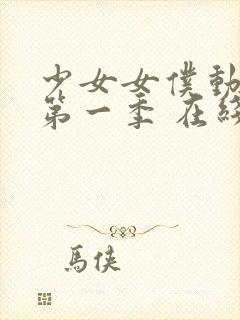 少女女僕動
第一季 在
馬俠